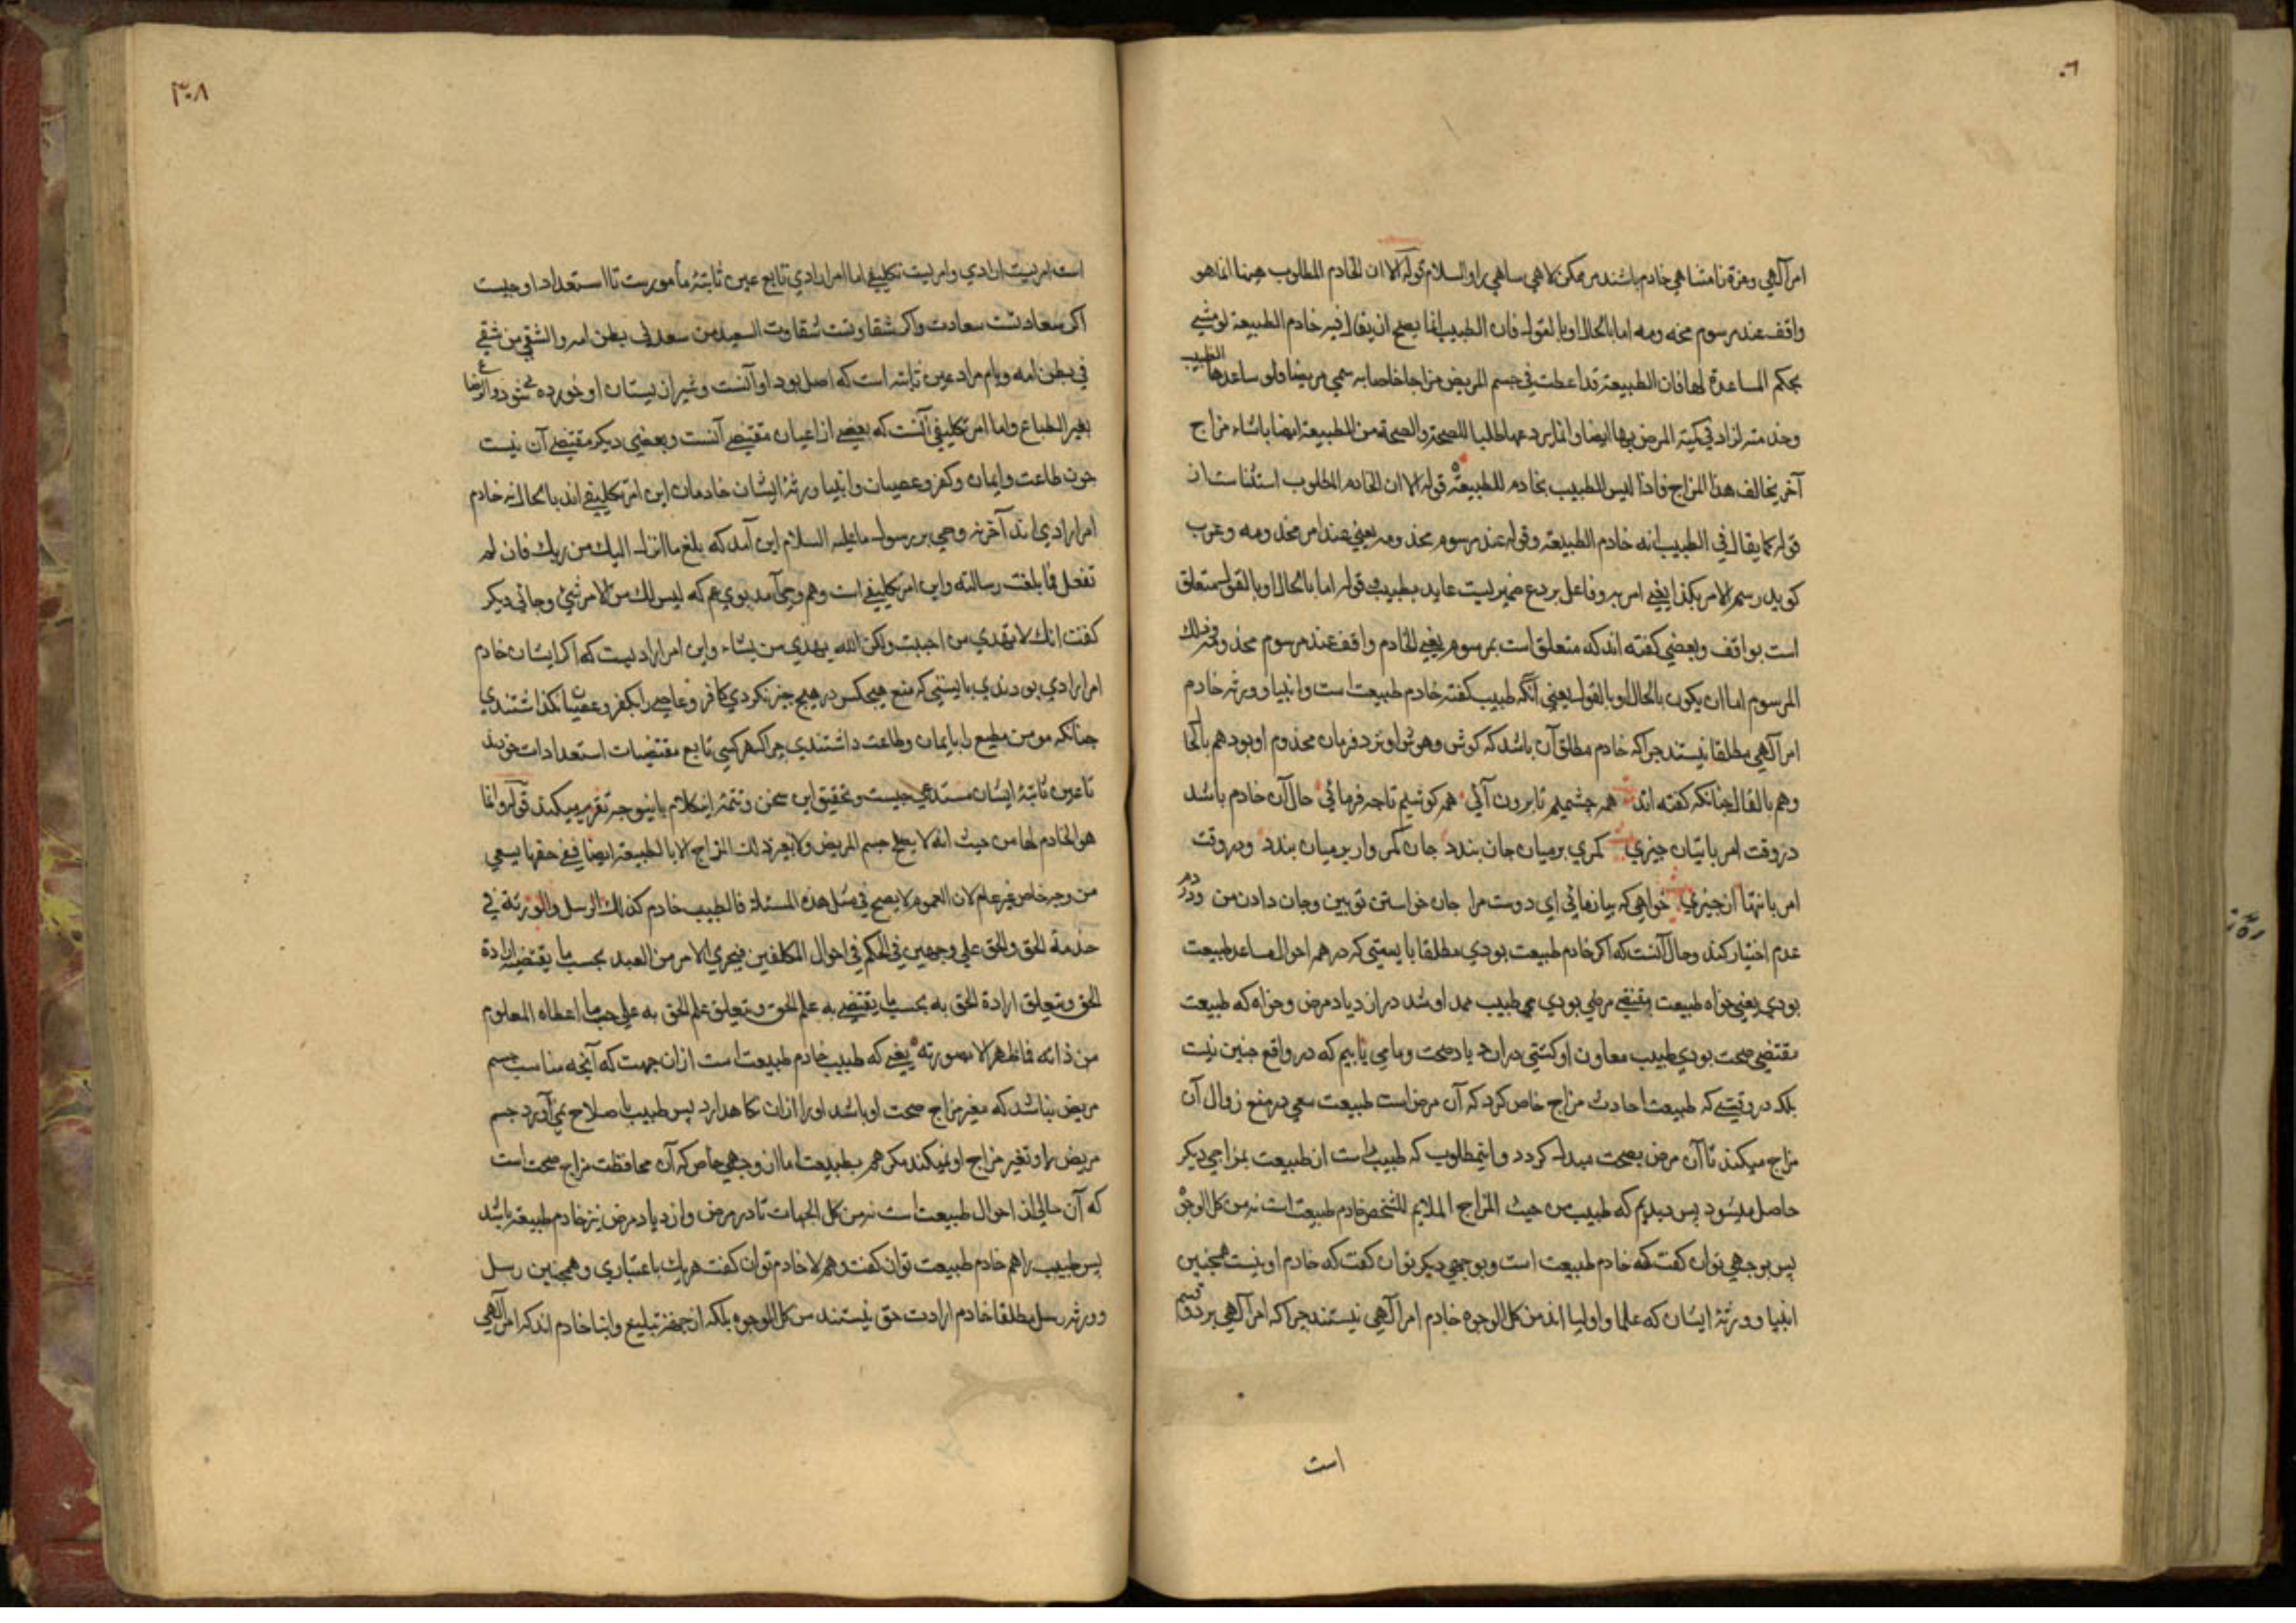 امر الهی وهزة نامشاهی خادم باشند بر ممکن لاهی ساهی را والسلام قوله الا ان الخادم المطلوب هنا انما هو
واقف عند مرسوم مخدومه اما بالحال او بالقول فان الطبیب انما یصح ان یقال فیه خادم الطبیعة لو مشی
بحکم المساعدة لها فان الطبیعة قد اعطت فی جسم المریض مزاجا خاصا به سمی مریضا ولو ساعدها الطبیب
وخدمته لزاد فی کمیة المرض بها ایضا وانما یردعها طلبا للصحة والصحة من الطبیعة ایضا بانشاء مزاج
آخر یخالف هذا المزاج فاذا لیس الطبیب بخادم للطبیعة قوله الا ان الخادم المطلوب استثناست از
قوله کما یقال فی الطبیب انه خادم الطبیعة وقوله عند مرسوم مخدومه یعنی عند امر مخدومه وعرب
کوید رسم الامر بکذا یعنی امر به وفاعل یردع ضمیریست عاید بطبیب قوله اما بالحال او بالقول متعلق
است بواقف وبعضی کفته اند که متعلق است بمرسوم یعنی الخادم واقف عند مرسوم مخدومه وذلک
المرسوم اما ان یکون بالحال او بالقول یعنی آنکه طبیب کفته خادم طبیعت است وانبیا وورثه خادم
امر الهی مطلقا نیستند چرا که خادم مطلق آن باشد که کوش وهوش او نزد فرمان مخدوم او بود هم بالحال
وهم بالقال چنانکه کفته اند همه چشمیم تا برون آئی همه کوشیم تا چه فرمائی حال آن خادم باشد
در وقت امر باتیان چیزی کمری بر میان جان بندد جان کمر وار بر میان بندد ودر وقت
امر بانتها از چیزی خواهی که بیازمائی ای دوست مرا جان خواستن تو بین وجان دادن من ودر دم
عدم اختیار کند وحال آنست که اکر خادم طبیعت بودی مطلقا بایستی که در همه احوال مساعد طبیعت
بودی یعنی خواه طبیعت مقتضی مرض بودی می طبیب ممد او شد در ازدیاد مرض وخواه که طبیعت
مقتضی صحت بودی طبیب معاون او کشتی در ازدیاد صحت وما می یابیم که در واقع چنین نیست
بلکه در وقتی که طبیعت احادث مزاج خاص کرد که آن مرض است طبیعت سعی در منع زوال آن
مزاج میکند تا آن مرض بصحت مبدل کردد واین مطلوب که طبیب است از طبیعت بمزاجی دیکر
حاصل میشود پس دیدیم که طبیب من حیث المزاج الملایم للشخص خادم طبیعت است نه من کل الوجوه
پس بوجهی توان کفت که خادم طبیعت است وبوجهی دیکر توان کفت که خادم او نیست همچنین
انبیا وورثهٔ ایشان که علما واولیا اند من کل الوجوه خادم امر الهی نیستند چرا که امر الهی بر دو قسم
است
٣٠٨
است امریست ارادی وامریست تکلیفی اما امر ارادی تابع عین ثابتهٔ مأمورست تا استعداد او چیست
اکر سعادتست سعادت واکر شقاوتست شقاوت السعید من سعد فی بطن امه والشقی من شقی
فی بطن امه وبام مراد عین ثابته است که اصل بود او آنست وشیر از پستان او خورده می شود والرضاع
یغیر الطباع واما امر تکلیفی آنست که بعضی از اعیان مقتضی آنست وبعضی دیکر مقتضی آن نیست
چون طاعت وایمان وکفر وعصیان وانبیا ورثهٔ ایشان خادمان این امر تکلیفی اند بالحال نه خادم
امر ارادی اند آخر نه وحی بر رسول ما علیه السلام این آمد که بلغ ما انزل الیک من ربک فان لم
تفعل فما بلغت رسالته واین امر تکلیفی است وهم وحی آمد بوی هم که لیس لک من الامر شیء وجائی دیکر
کفت انک لا تهدی من احببت ولکن الله یهدی من یشاء واین امر ارادیست که اکر ایشان خادم
امر ارادی بودندی بایستی که منع هیچکس در هیچ چیز نکردی کافر وعاصی را بکفر وعصیان بکذاشتندی
چنانکه مومن مطیع را بایمان وطاعت داشتندی چرا که هر کسی تابع مقتضیات استعدادات خودند
تا عین ثابتهٔ ایشان مستدعی چیست وتحقیق این سخن وتتمهٔ این کلام باینوجه تقریر میکند قوله وانما
هو الخادم لها من حیث انه لا یصلح جسم المریض ولا یغیر ذلک المزاج الا بالطبیعة ایضا ففی حقها یسعی
من وجه خاص غیر عام لان العموم لا یصح فی مثل هذه المسئلة فالطبیب خادم کذلک الرسل والورثة فی
خدمة الحق والحق علی وجهین فی الحکم فی احوال المکلفین فیجری الامر من العبد بحسب ما یقتضیه ارادة
الحق ویتعلق ارادة الحق به بحسب ما یقتضی به علم الحق ویتعلق علم الحق به علی حسب ما اعطاه المعلوم
من ذاته فما ظهر الا بصورته یعنی که طبیب خادم طبیعت است ازان جهت که آنچه مناسب جسم
مریض نباشد که مغیر مزاج صحت او باشد او را ازان نکاه دارد پس طبیب باصلاح نمی آورد جسم
مریض را وتغیر مزاج او نمیکند مکر هم بطبیعت اما از وجهی خاص که آن محافظت مزاج صحت است
که آن حالی از احوال طبیعت است نه من کل الجهات تا در مرض وازدیاد مرض نیز خادم طبیعة باشد
پس طبیب را هم خادم طبیعت توان کفت وهم لا خادم توان کفت هر یک باعتباری وهمچنین رسل
وورثهٔ رسل مطلقا خادم ارادت حق نیستند من کل الوجوه بلکه از جهة تبلیغ وانبا خادم اند که امر الهی